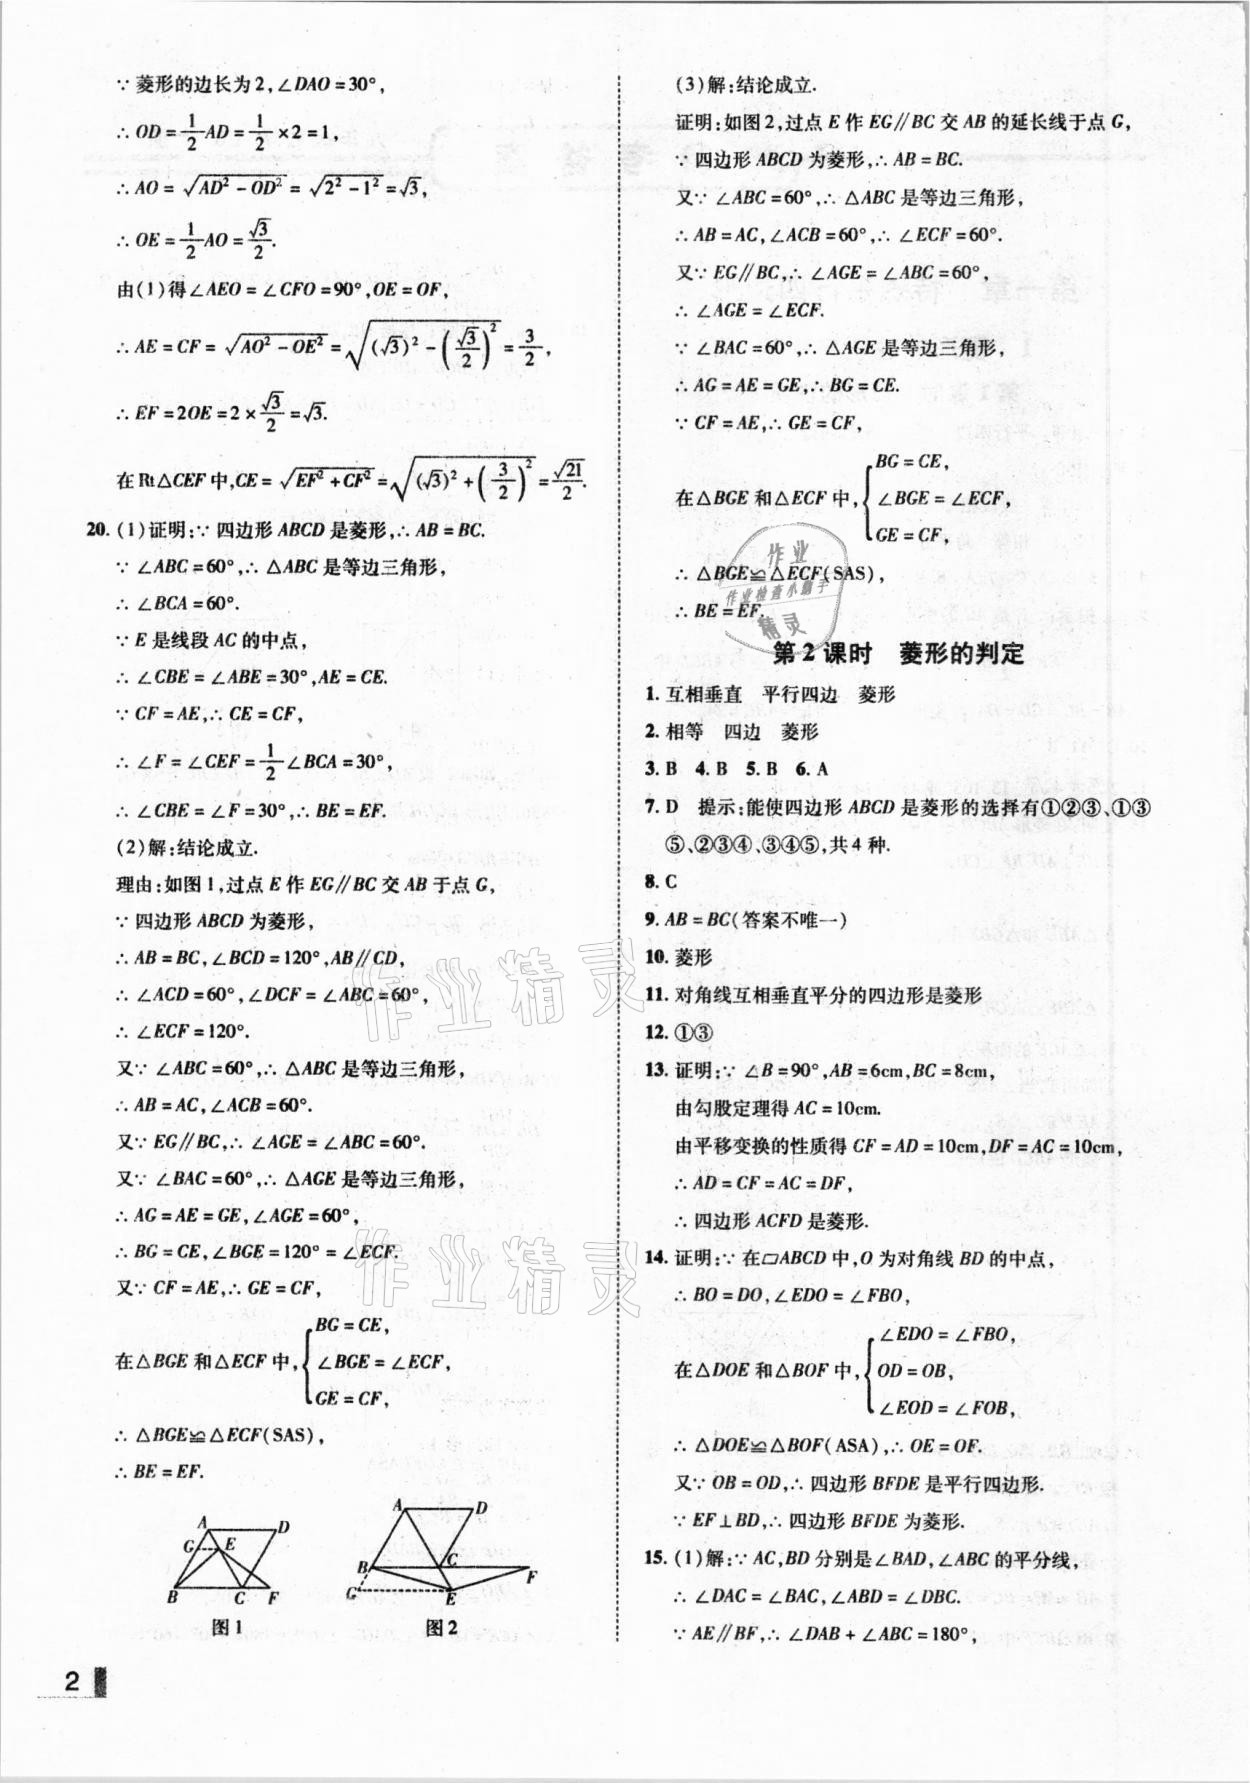 ∵ 菱形的边长为2,∠DAO=30°,
∴ OD=1/2AD=1/2×2=1,
∴ AO=√(AD²-OD²)=√(2²-1²)=√3,
∴ OE=1/2AO=√3/2.
由(1)得∠AEO=∠CFO=90°,OE=OF,
∴ AE=CF=√(AO²-OE²)=√((√3)²-(√3/2)²)=3/2,
∴ EF=2OE=2×√3/2=√3.
在Rt△CEF中,CE=√(EF²+CF²)=√((√3)²+(3/2)²)=√21/2.
20. (1)证明:∵ 四边形ABCD是菱形,∴ AB=BC.
∵ ∠ABC=60°,∴ △ABC是等边三角形,
∴ ∠BCA=60°.
∵ E是线段AC的中点,
∴ ∠CBE=∠ABE=30°,AE=CE.
∵ CF=AE,∴ CE=CF,
∴ ∠F=∠CEF=1/2∠BCA=30°,
∴ ∠CBE=∠F=30°,∴ BE=EF.
(2)解:结论成立.
理由:如图1,过点E作EG∥BC交AB于点G,
∵ 四边形ABCD为菱形,
∴ AB=BC,∠BCD=120°,AB∥CD,
∴ ∠ACD=60°,∠DCF=∠ABC=60°,
∴ ∠ECF=120°.
又∵ ∠ABC=60°,∴ △ABC是等边三角形,
∴ AB=AC,∠ACB=60°.
又∵ EG∥BC,∴ ∠AGE=∠ABC=60°.
又∵ ∠BAC=60°,∴ △AGE是等边三角形,
∴ AG=AE=GE,∠AGE=60°,
∴ BG=CE,∠BGE=120°=∠ECF.
又∵ CF=AE,∴ GE=CF,
在△BGE和△ECF中,{BG=CE,
∠BGE=∠ECF,
GE=CF,
∴ △BGE≌△ECF(SAS),
∴ BE=EF.
A D G E B C F
图1
A D B C F G E
图2
2
(3)解:结论成立.
证明:如图2,过点E作EG∥BC交AB的延长线于点G,
∵ 四边形ABCD为菱形,∴ AB=BC.
又∵ ∠ABC=60°,∴ △ABC是等边三角形,
∴ AB=AC,∠ACB=60°,∴ ∠ECF=60°.
又∵ EG∥BC,∴ ∠AGE=∠ABC=60°,
∴ ∠AGE=∠ECF.
∵ ∠BAC=60°,∴ △AGE是等边三角形,
∴ AG=AE=GE,∴ BG=CE.
∵ CF=AE,∴ GE=CF,
在△BGE和△ECF中,{BG=CE,
∠BGE=∠ECF,
GE=CF,
∴ △BGE≌△ECF(SAS),
∴ BE=EF.
作业
作业检查小助手
精灵
第2课时 菱形的判定
1. 互相垂直 平行四边 菱形
2. 相等 四边 菱形
3. B 4. B 5. B 6. A
7. D 提示:能使四边形ABCD是菱形的选择有①②③、①③
⑤、②③④、③④⑤,共4种.
8. C
9. AB=BC(答案不唯一)
10. 菱形
11. 对角线互相垂直平分的四边形是菱形
12. ①③
13. 证明:∵ ∠B=90°,AB=6cm,BC=8cm,
由勾股定理得AC=10cm.
由平移变换的性质得CF=AD=10cm,DF=AC=10cm,
∴ AD=CF=AC=DF,
∴ 四边形ACFD是菱形.
14. 证明:∵ 在▱ABCD中,O为对角线BD的中点,
∴ BO=DO,∠EDO=∠FBO,
在△DOE和△BOF中,{∠EDO=∠FBO,
OD=OB,
∠EOD=∠FOB,
∴ △DOE≌△BOF(ASA),∴ OE=OF.
又∵ OB=OD,∴ 四边形BFDE是平行四边形.
∵ EF⊥BD,∴ 四边形BFDE为菱形.
15. (1)解:∵ AC,BD分别是∠BAD,∠ABC的平分线,
∴ ∠DAC=∠BAC,∠ABD=∠DBC.
∵ AE∥BF,∴ ∠DAB+∠ABC=180°,
作业精灵
作业精灵